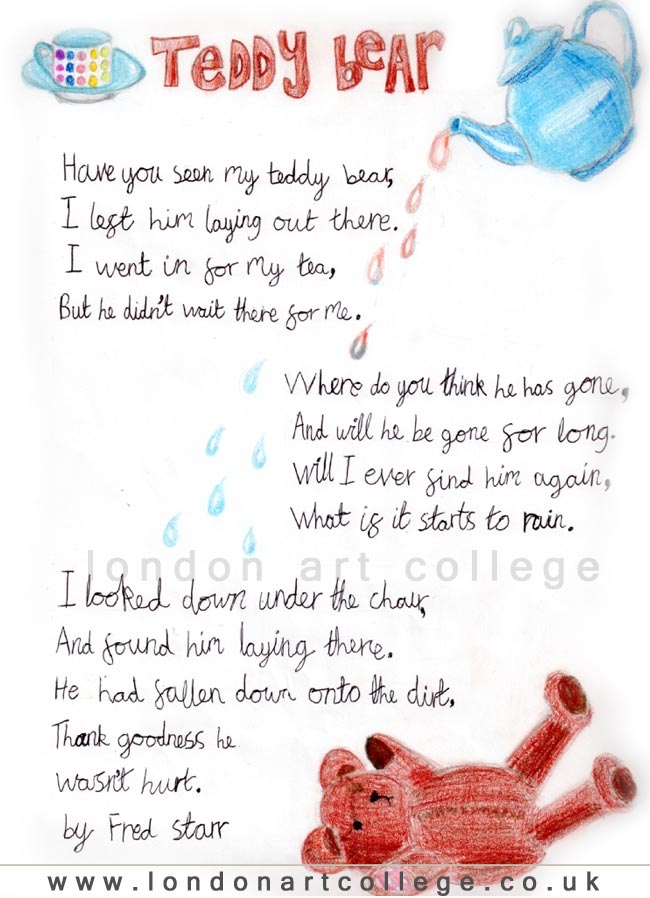 TEDDY bEAR
Have you seen my teddy bear,
I left him laying out there.
I went in for my tea,
But he didn't wait there for me.
Where do you think he has gone,
And will he be gone for long.
Will I ever find him again,
What if it starts to rain.
london art college
I looked down under the chair,
And found him laying there.
He had fallen down onto the dirt,
Thank goodness he
wasn't hurt.
by Fred starr
www.londonartcollege.co.uk